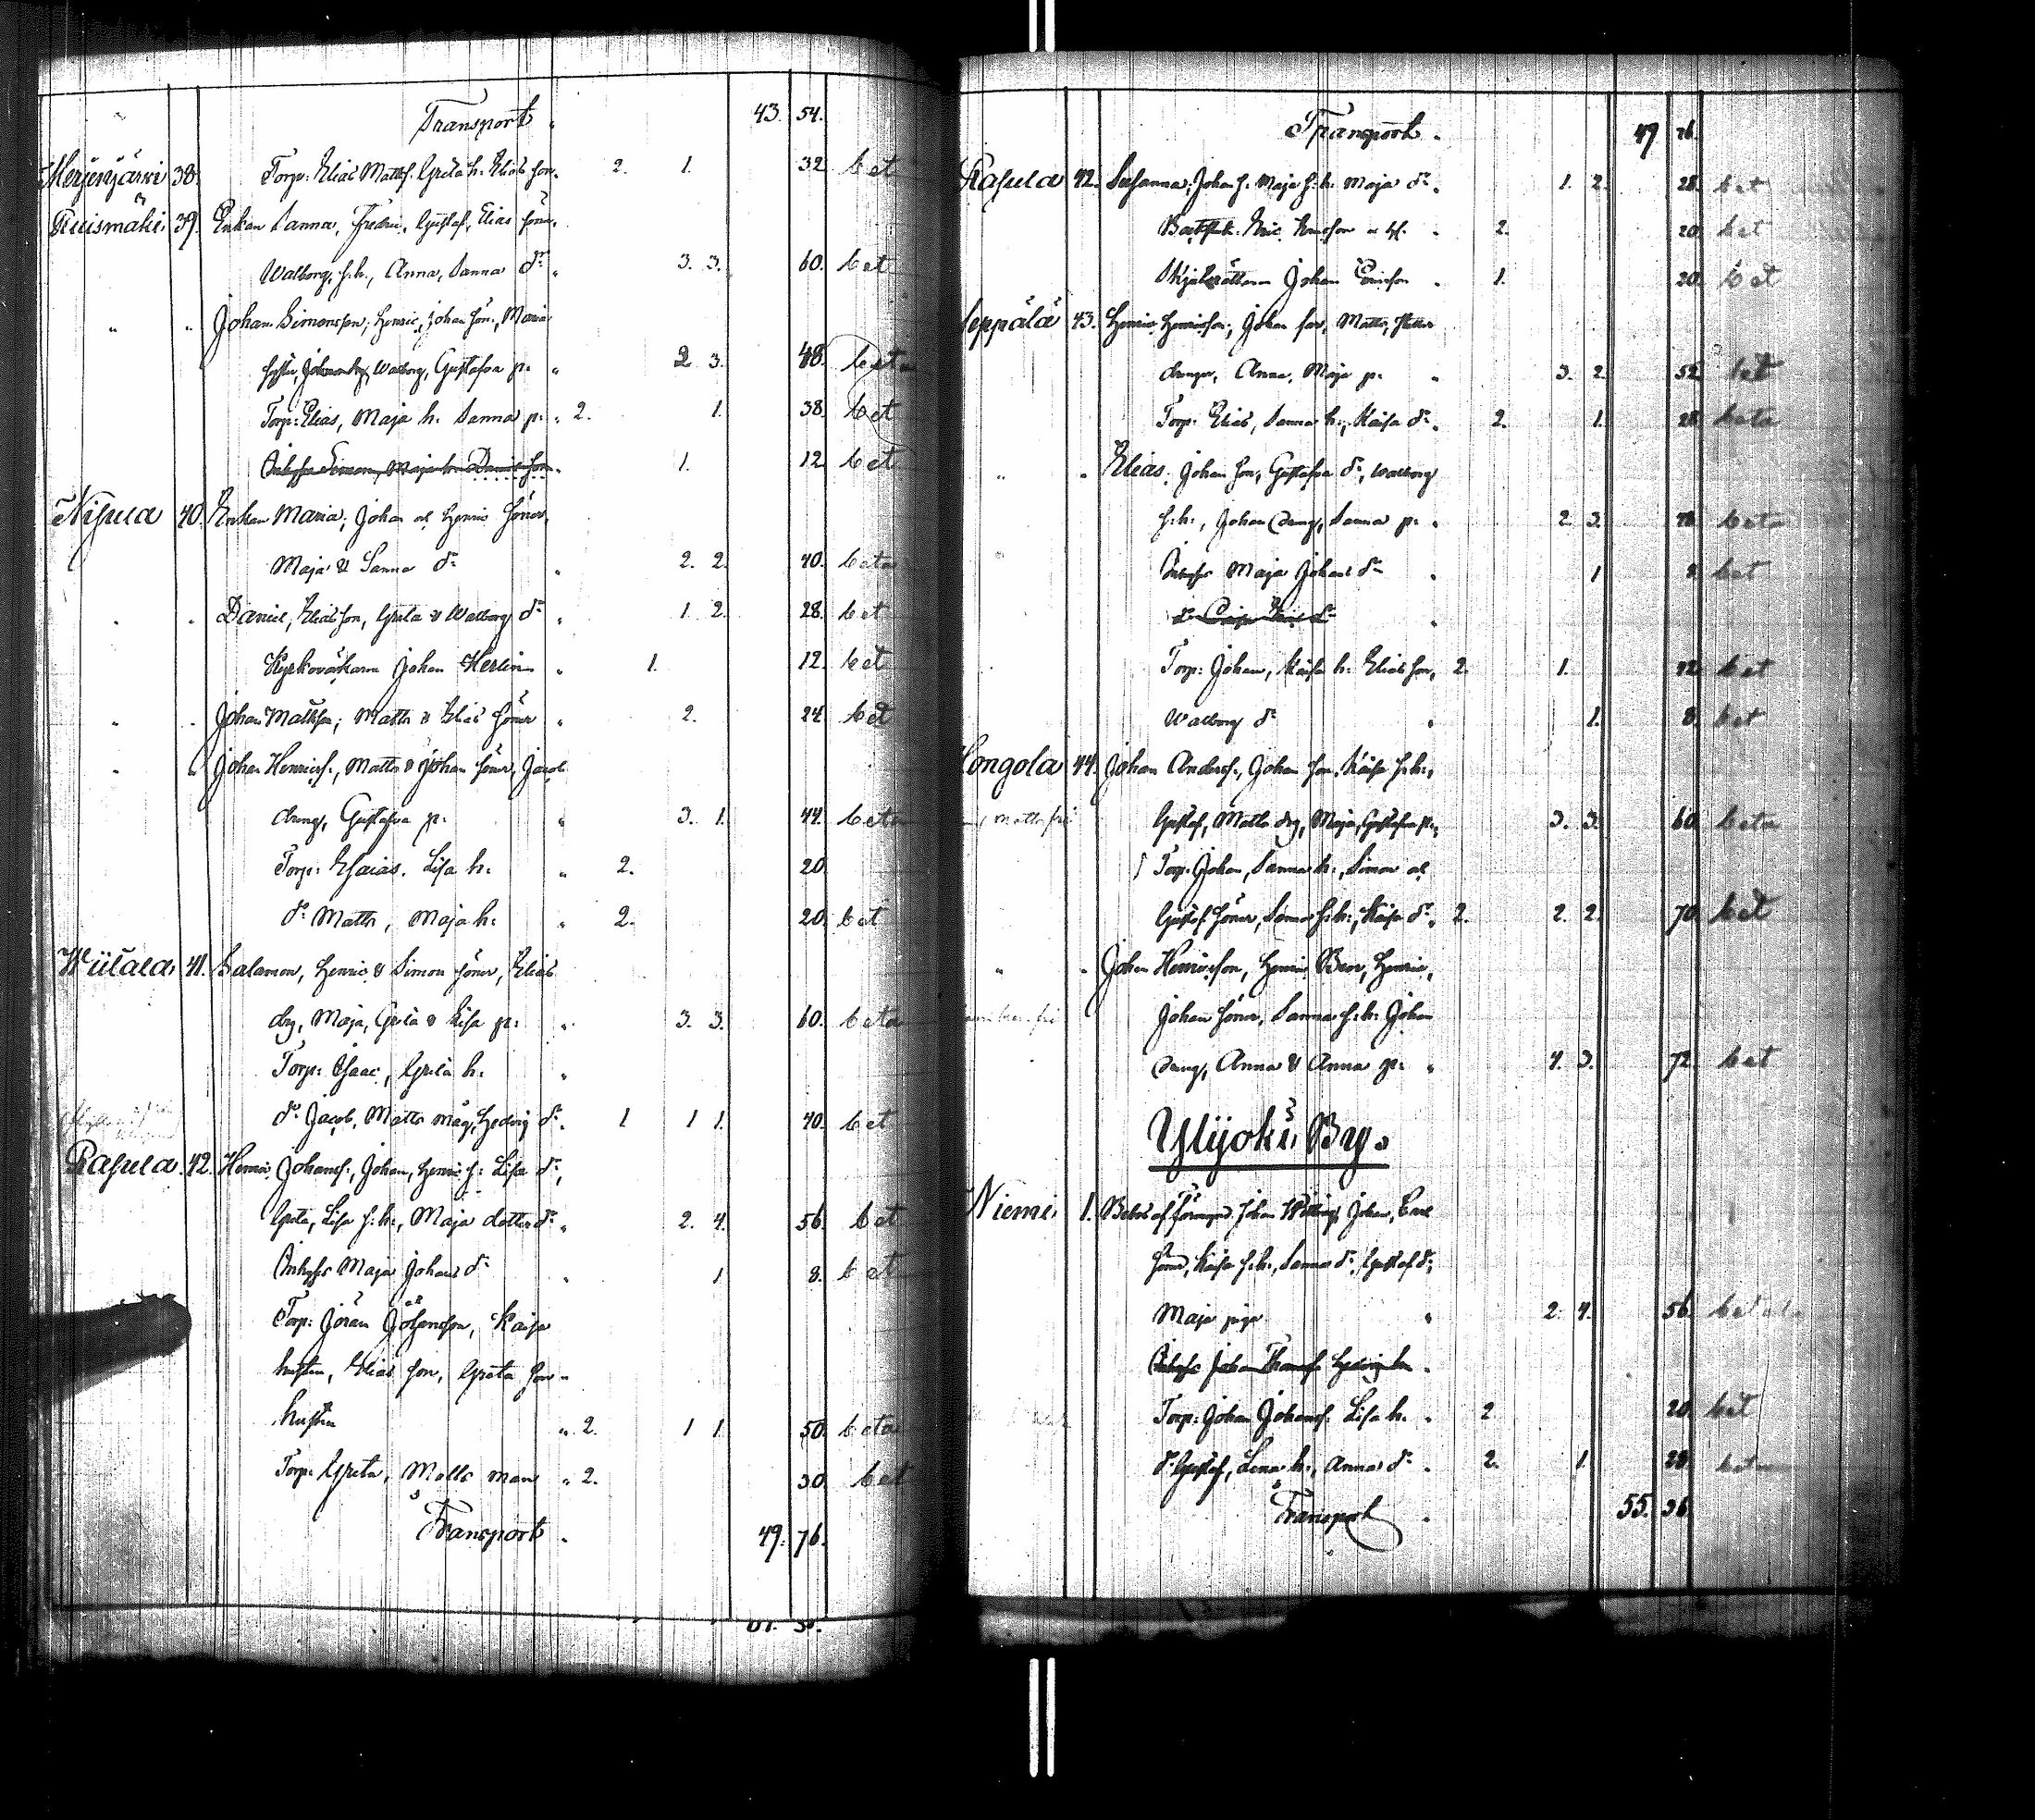 Transport " 43. 54.
Merjenjärvi 38. Torp: Elias Matts: Greta h. Elias son. 2. 1. 32. bet
Ruismäki 39. Enkan Sanna, Fredric, Gustaf, Elias söner,
Walborg, s.h., Anna, Sanna dr " 3. 3. 60. bet
" " Johan Simonsson, Henric, Johan son, Maria
Walborg, Gustafva p: " 2 3. 48. beta
Torp: Elias, Maja h. Sanna p: " 2. 1. 38. bet
Inhyses Simon, Maja 1. 12. bet
Nisula 40. Enkan Maria, Johan o. Henric söner,
Maja & Sanna dr " 2. 2. 40. beta
" " Daniel, Elias son, Greta & Walborg dr " 1. 2. 28. bet
Kyrkoväktaren Johan Herlin " 1. 12. bet
" " Johan Mattsson, Matts & Elias söner " 2. 24. bet
" " Johan Henricss., Matts & Johan söner, Jacob
dreng, Gustafva p: " 3. 1. 44. beta
Torp: Esaias, Lisa h: " 2. 20.
do Matts, Maja h: " 2. 20. bet
Wiitala 41. Salamon, Henric & Simon söner, Elias
drg, Maja, Greta & Lisa p: " 3. 3. 60. beta
Torp: Isaac, Greta h: "
do Jacob, Matts måg, Hedvig dr " 1 1 1. 40. bet
Rasula 42. Henric Johanss:, Johan, Henric s: Lisa dr,
Greta, Lisa s.h., Maja dotter dr " 2. 4. 56. bet
Inhyses Maja Johans dr " 1 8. bet
Torp: Jöran Johansson, Kaisa
hustru, Elias son, Greta son-
hustru " 2. 1 1. 50. beta
Torp: Greta, Matts man " 2. 30. bet
Transport " 49. 76.
Transport " 49 76.
Rasula 42. Susanna, Johan s. Maja s.h. Maja dr " 1. 2. 28. bet
Eric " 2. 20. bet
Johan Ericsson " 1. 20. bet
Seppälä 43. Henric Henricsson, Johan son, Matts,
drengar, Anna, Maja p: " 3. 2. 52. bet
Torp: Elias, Sanna h:, Kaisa dr " 2. 1. 28. beta
" " Elias, Johan son, Gustafva dr, Walborg
s.h., Johan dreng, Sanna p: " 2 3. 48. beta
Inhyses Maja Johans dr " 1 8 bet
Torp: Johan, Kaisa h: Elias son, 2. 1. 32. bet
Walborg dr " 1. 8. bet
Hongola 44. Johan Anderss., Johan son, Kaisa s.h.,
Gustaf, Matts drg, Maja, Gustafva p:, 3. 3. 60. beta
Torp: Johan, Sanna h:, Simon o.
Gustaf söner, Sanna s.h., Kaisa dr " 2. 2. 2. 70. bet
" " Johan Henricsson, Henric Bror, Henric,
Johan söner, Sanna s.h. Johan
dreng, Anna & Anna p: " 4. 3. 72. bet
Ylijoki By.
Niemi 1. Johan Johan, Carl
söner, Kaisa s.h., Sanna dr, Gustaf dr,
Maja piga " 2. 4. 56. betala
Inhyses Johan
Torp: Johan Johanss: Lisa h. " 2 20. bet
do Gustaf, Lena h:, Anna dr " 2. 1. 28. beta
Transport " 55. 36.